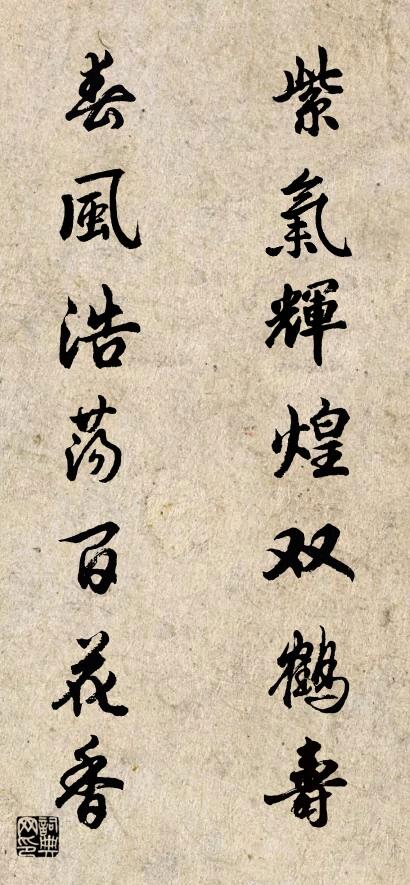 紫氣輝煌双鶴壽
春風浩蕩百花香
詞典网印